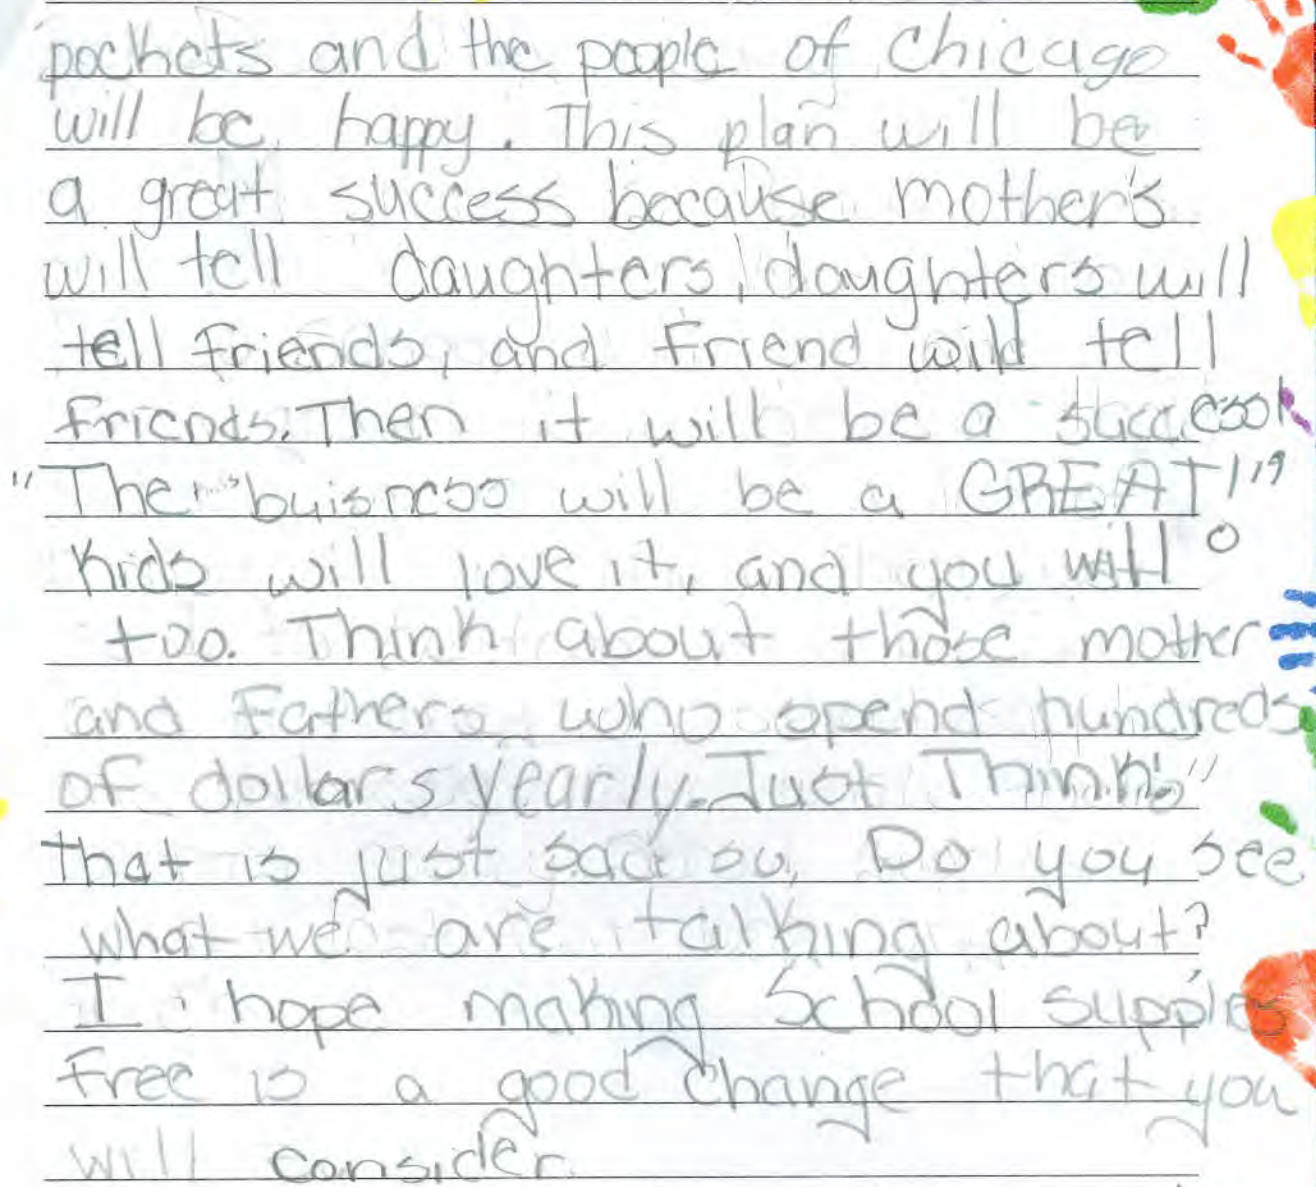 pockets and the people of Chicago
will be happy. This plan will be
a great success because mother's
will tell daughters, daughters will
tell friends, and friend will tell
friends. Then it will be a success!
"The buisness will be a GREAT!"
Kids will love it, and you will
too. Think about those mother
and Fathers who spend hundreds
of dollars yearly. Just Think!"
that is just sad so, Do you see
what we are talking about?
I hope making School supples
free is a good change that you
will consider.